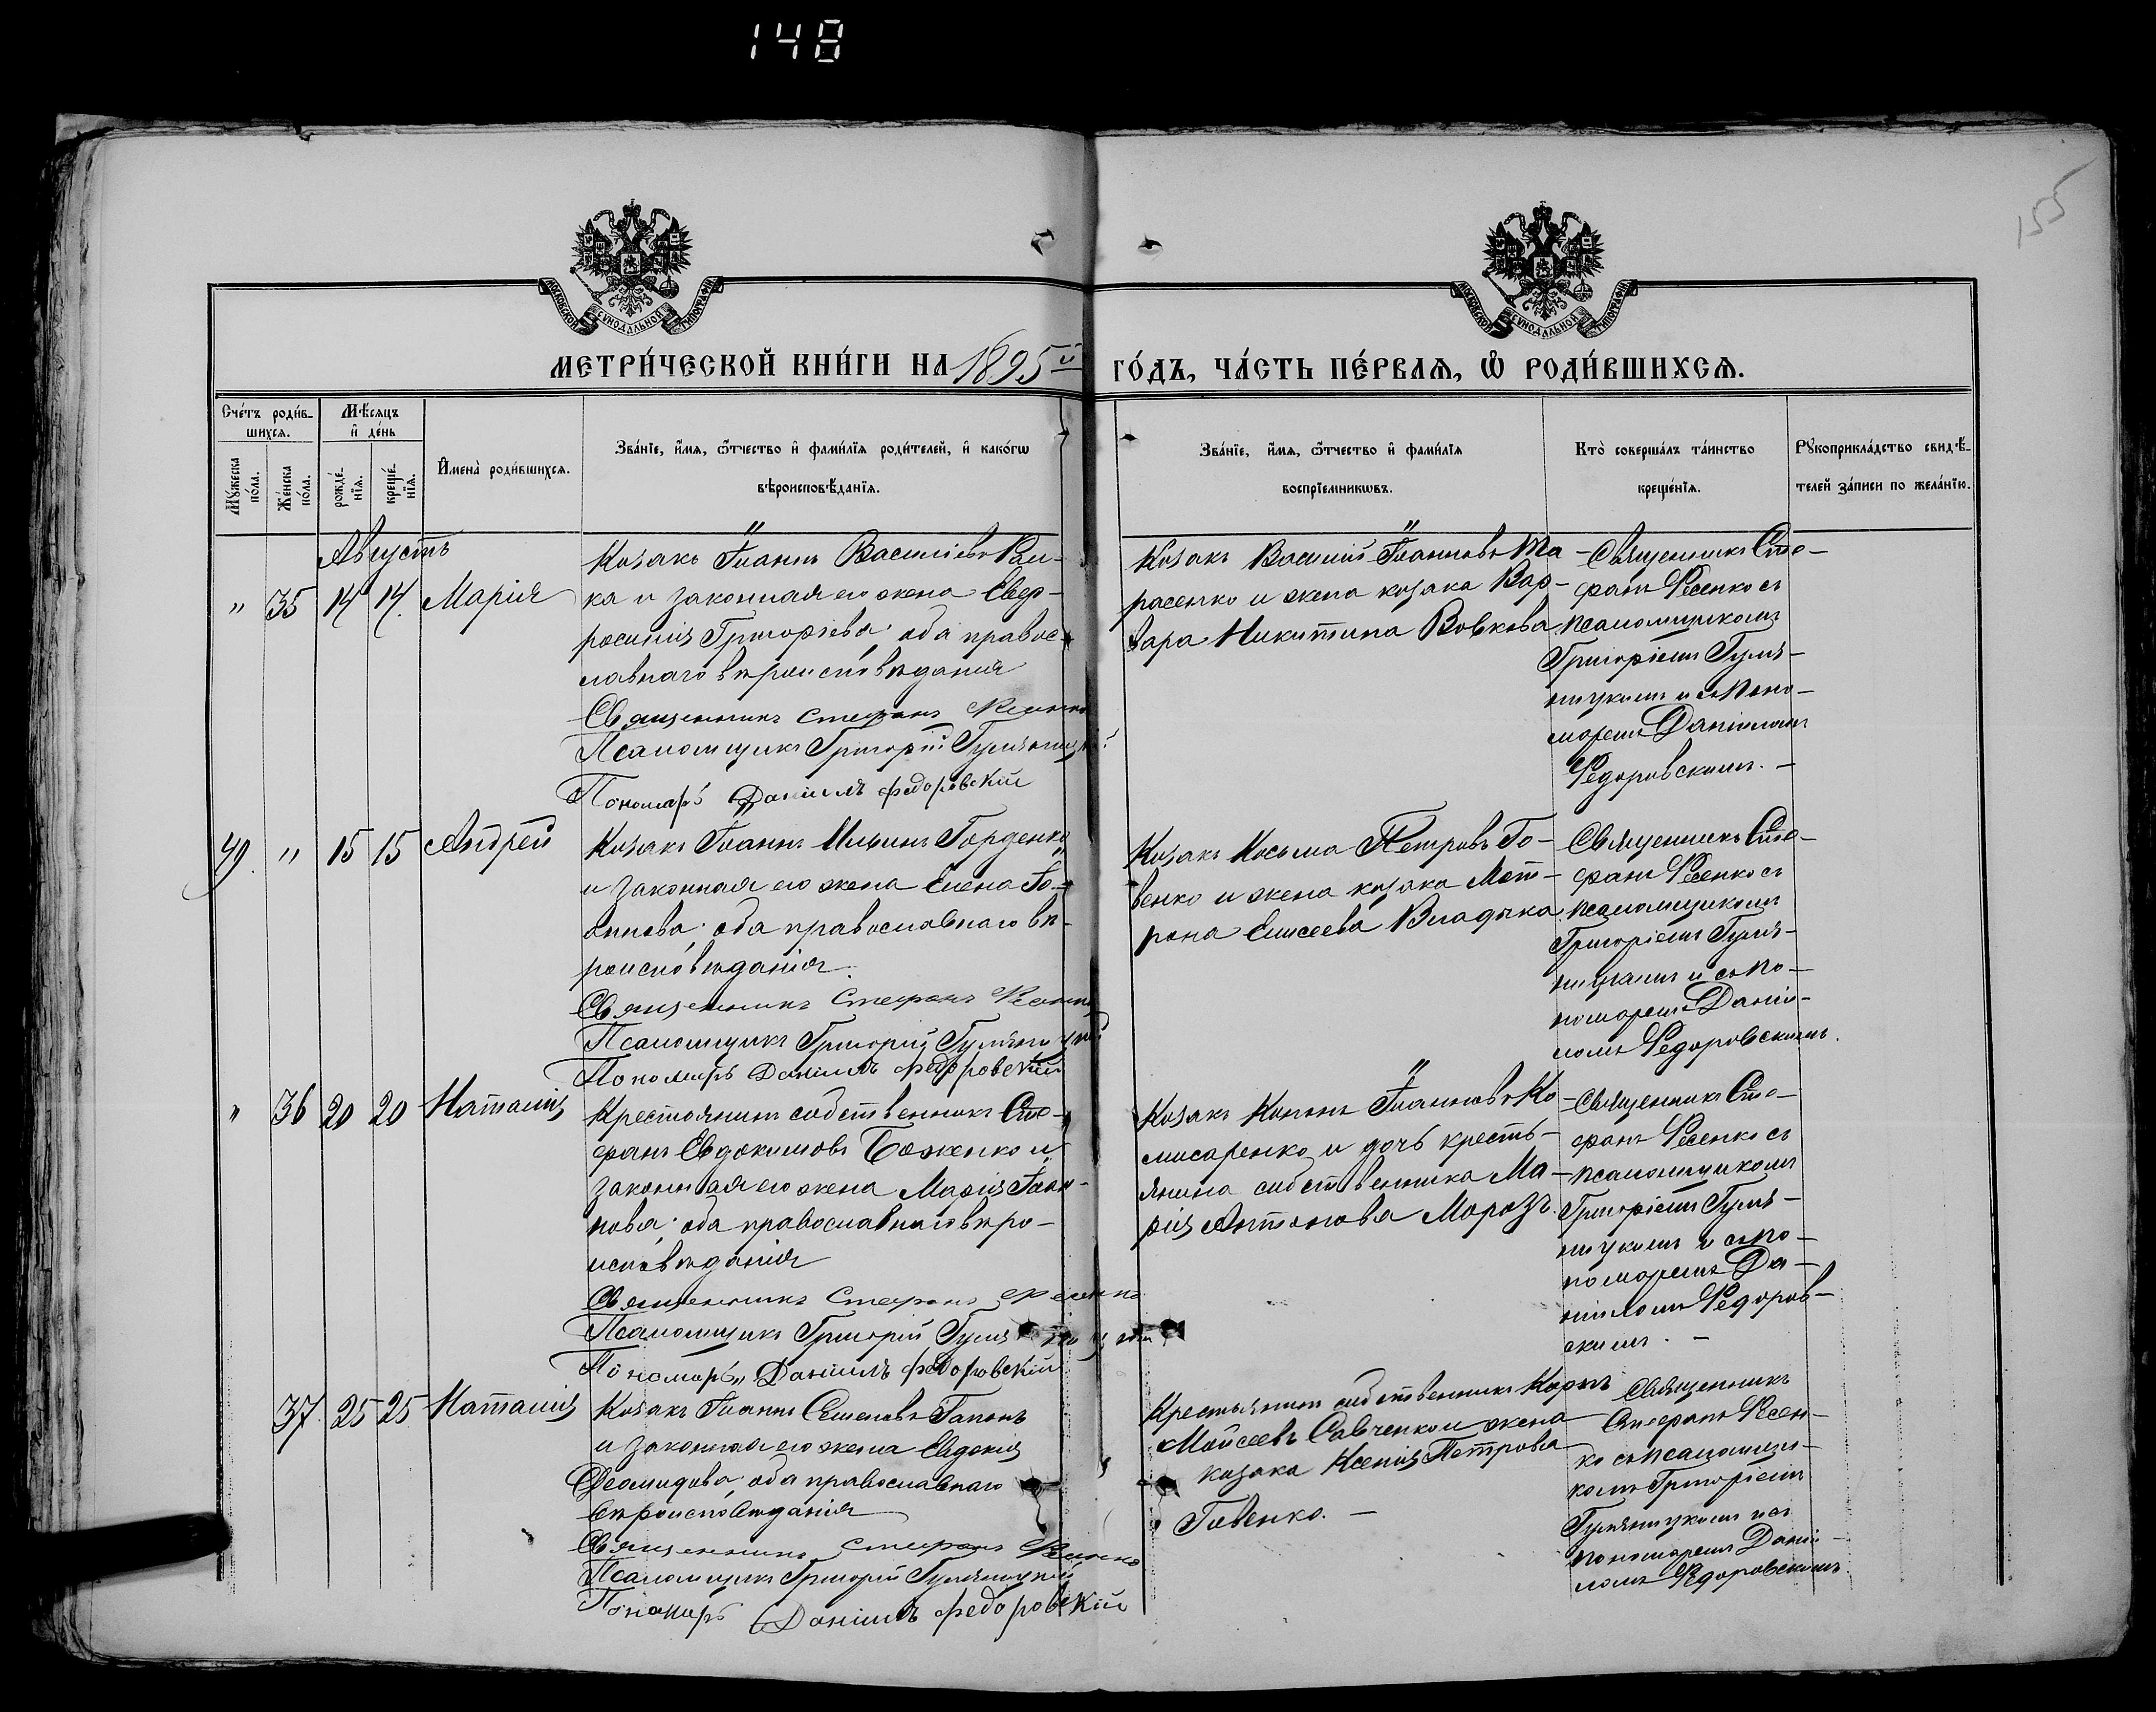 148
155
МОСКОВСКОЙ СѴНОДАЛЬНОЙ ТИПОГРАФІИ
МОСКОВСКОЙ СѴНОДАЛЬНОЙ ТИПОГРАФІИ
МЕТРИ́ЧЕСКОЙ КНИ́ГИ НА 1895й ГО́ДЪ, ЧА́СТЬ ПЕ́РВАѦ, Ѡ РОДИ́ВШИХСѦ.
Сче́тъ роди́в-
шихсѧ.
Мѣ́сѧцъ
и҆ де́нь
Мꙋ́жеска
по́ла.
Же́нска
по́ла.
рожде́-
нїѧ.
креще́-
нїѧ.
И҆мена̀ роди́вшихсѧ.
Зва́нїе, и҆́мѧ, ѻ҆́тчество и҆ фами́лїѧ роди́телей, и҆ како́гѡ
вѣроисповѣ́данїѧ.
Зва́нїе, и҆́мѧ, ѻ҆́тчество и҆ фами́лїѧ
воспрїе́мникѡвъ.
Кто̀ соверша́лъ та́инство
креще́нїѧ.
Рꙋкоприкла́дство свидѣ́-
телей за́писи по жела́нїю.
Августъ
" 35 14 14. Марія
Козакъ Іоаннъ Василіевъ
ка и законная его жена Евф-
росинія Григоріева; оба правос-
лавнаго вѣроисповѣданія
Священникъ Стефанъ Ѳесенко
Псаломщикъ Григорій
Пономарь Даніилъ Федоровскій
Козакъ Василій Іоанновъ Та-
расенко и жена козака Вар-
вара Никитина Вовкова.
Священникъ Сте-
фанъ Ѳесенко съ
псаломщикомъ
Григоріемъ Гумя-
ницкимъ и съ поно-
моремъ Даніиломъ
Ѳедоровскимъ. —
49. " 15 15 Андрей
Козакъ Іоаннъ Ильинъ Горденко
и законная его жена Елена Іо-
аннова; оба православнаго вѣ-
роисповѣданія.
Священникъ Стефанъ Ѳесенко
Псаломщикъ Григорій Гумяницкій
Пономарь Даніилъ Федоровскій
Козакъ Косьма Петровъ Го-
венко и жена козака Мот-
рона Елисеева Владыка.
Священникъ Сте-
фанъ Ѳесенко съ
псаломщикомъ
Григоріемъ Гумя-
ницкимъ и съ по-
номоремъ Даніи-
ломъ Ѳедоровскимъ.
" 36 20 20 Наталія
Крестьянинъ собственникъ Сте-
фанъ Евдокимовъ Боженко и
законная его жена Марія Іоан-
нова; оба православнаго вѣро-
исповѣданія
Священникъ Стефанъ Ѳесенко
Псаломщикъ Григорій Гумяницкій
Пономарь Даніилъ Федоровскій
Козакъ Кононъ Іоанновъ Ко-
мисаренко и дочь кресть-
янина собственника Ма-
рія Антонова Морозъ.
Священникъ Сте-
фанъ Ѳесенко съ
псаломщикомъ
Григоріемъ Гумя-
ницкимъ и съ по-
номоремъ Да-
ніиломъ Ѳедоров-
скимъ. —
37. 25 25 Наталія
Козакъ Іоаннъ Семеновъ Гапонъ
и законная его жена Евдокія
Діомидова; оба православнаго
вѣроисповѣданія
Священникъ Стефанъ Ѳесенко
Псаломщикъ Григорій Гумяницкій
Пономарь Даніилъ Федоровскій
Крестьянинъ собственникъ Карпъ
Моисеевъ Савченко и жена
козака Ксенія Петрова
Говенко. —
Священникъ
Стефанъ Ѳесен-
ко съ псаломщи-
комъ Григоріемъ
Гумяницкимъ и съ
пономаремъ Даніи-
ломъ Ѳедоровскимъ.